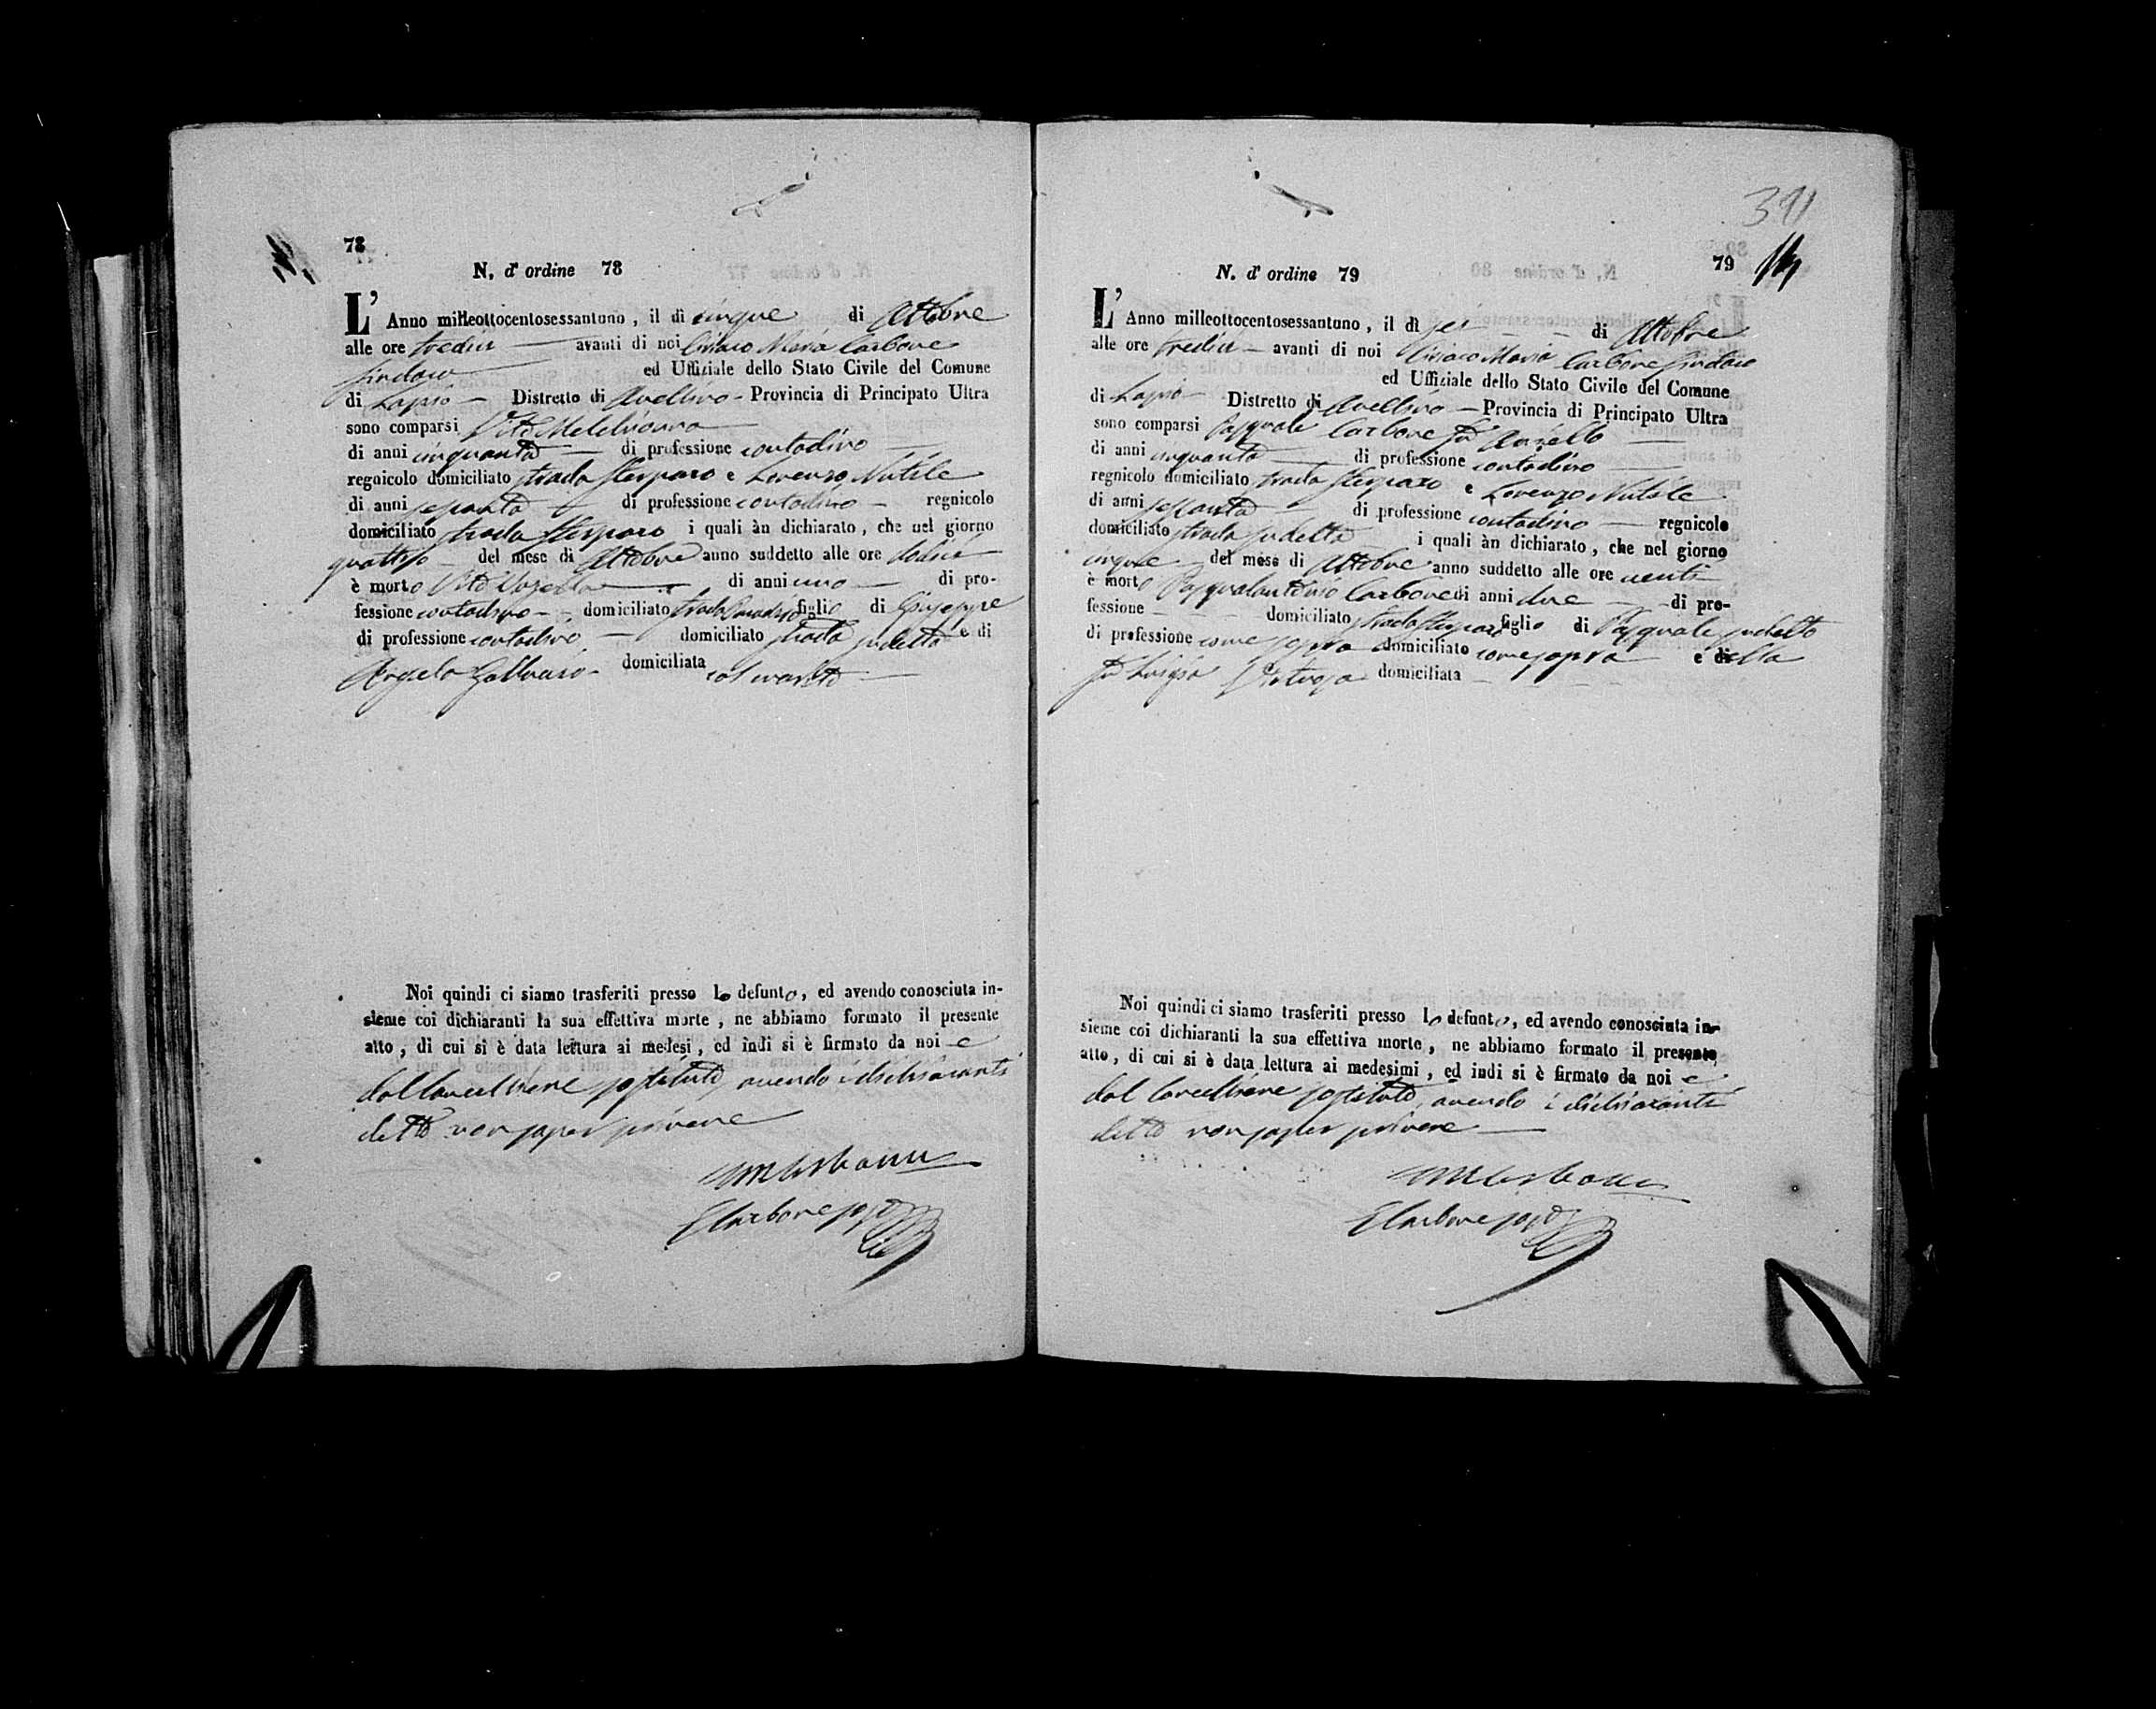 78
N. d' ordine 78
L' Anno milleottocentosessantuno, il dì cinque di Ottobre
alle ore tredici avanti di noi Ciriaco Maria Carbone
Sindaco ed Uffiziale dello Stato Civile del Comune
di Lapio Distretto di Avellino Provincia di Principato Ultra
sono comparsi Vito Melchionna
di anni cinquanta di professione contadino
regnicolo domiciliato strada Sterparo e Lorenzo Nutile
di anni sessanta di professione contadino regnicolo
domiciliato strada Sterparo i quali àn dichiarato, che nel giorno
quattro del mese di Ottobre anno suddetto alle ore dodici
è morto Vito di anni uno di pro-
fessione contadino domiciliato strada figlio di Giuseppe
di professione contadino domiciliato strada sudetta e di
Angela domiciliata col marito
Noi quindi ci siamo trasferiti presso lo defunto, ed avendo conosciuta in-
sieme coi dichiaranti la sua effettiva morte, ne abbiamo formato il presente
atto, di cui si è data lettura ai medesi, ed indi si è firmato da noi e
dal Cancelliere sostituto, avendo i dichiaranti
detto non saper scrivere
CM Carbone
E Carbone sosto
39
79
N. d' ordine 79
L' Anno milleottocentosessantuno, il dì sei di Ottobre
alle ore tredici avanti di noi Ciriaco Maria Carbone Sindaco
ed Uffiziale dello Stato Civile del Comune
di Lapio Distretto di Avellino Provincia di Principato Ultra
sono comparsi Pasquale Carbone fu Aniello
di anni cinquanta di professione contadino
regnicolo domiciliato strada Sterparo e Lorenzo Nutile
di anni sessanta di professione contadino regnicolo
domiciliato strada sudetta i quali àn dichiarato, che nel giorno
cinque del mese di Ottobre anno suddetto alle ore venti
è morto Pasqualantonio Carbone di anni due di pro-
fessione domiciliato strada Sterparo figlio di Pasquale sudetto
di professione come sopra domiciliato come sopra e della
fu Luigia domiciliata
Noi quindi ci siamo trasferiti presso lo defunto, ed avendo conosciuta in-
sieme coi dichiaranti la sua effettiva morte, ne abbiamo formato il presente
atto, di cui si è data lettura ai medesimi, ed indi si è firmato da noi e
dal Cancelliere sostituto, avendo i dichiaranti
detto non saper scrivere
CM Carbone
E Carbone sosto